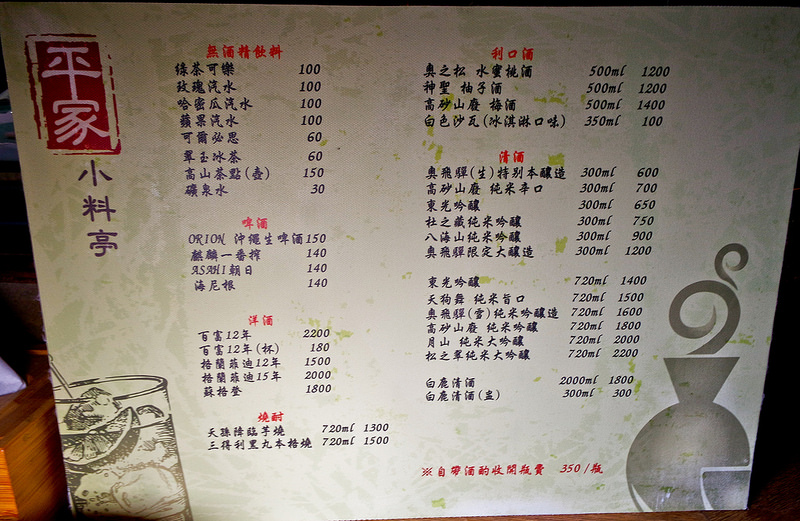 平家
小料亭
無酒精飲料
綠茶可樂 100
玫瑰汽水 100
哈密瓜汽水 100
蘋果汽水 100
可爾必思 60
翠玉冰茶 60
高山茶點(壺) 150
礦泉水 30
啤酒
ORION 沖繩生啤酒 150
麒麟一番搾 140
ASAHI朝日 140
海尼根 140
洋酒
百富12年 2200
百富12年(杯) 180
格蘭菲迪12年 1500
格蘭菲迪15年 2000
蘇格登 1800
燒酎
天孫降臨芋燒 720ml 1300
三得利黑丸本格燒 720ml 1500
利口酒
奧之松 水蜜桃酒 500ml 1200
神聖 柚子酒 500ml 1200
高砂山廢 梅酒 500ml 1400
白色沙瓦(冰淇淋口味) 350ml 100
清酒
奧飛驒(生)特別本釀造 300ml 600
高砂山廢 純米辛口 300ml 700
東光吟釀 300ml 650
杜之藏純米吟釀 300ml 750
八海山純米吟釀 300ml 900
奧飛驒限定大釀造 300ml 1200
東光吟釀 720ml 1400
天狗舞 純米旨口 720ml 1500
奧飛驒(雪)純米吟釀造 720ml 1600
高砂山廢 純米吟釀 720ml 1800
月山 純米大吟釀 720ml 2000
松之翠純米大吟釀 720ml 2200
白鹿清酒 2000ml 1800
白鹿清酒(盅) 300ml 300
※自帶酒酌收開瓶費 350/瓶